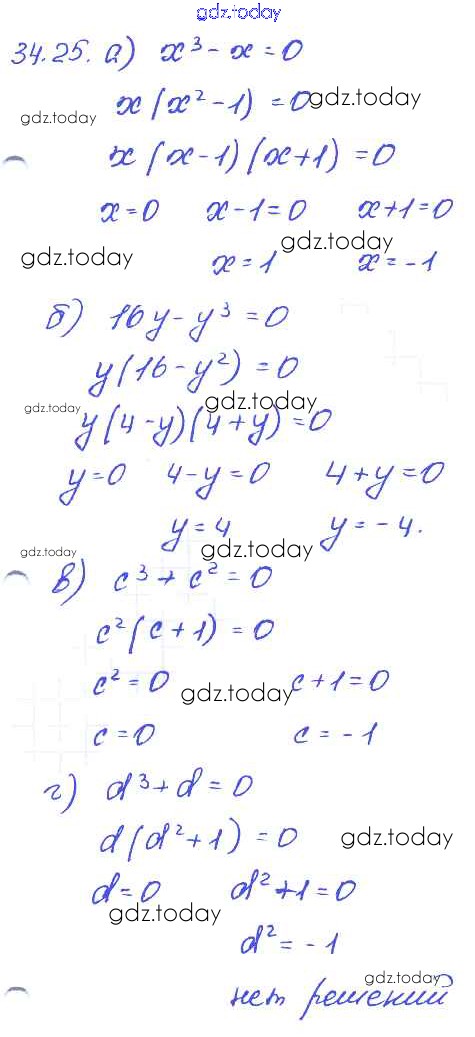 gdz.today
34.25. а) x³ - x = 0
x(x² - 1) = 0 gdz.today
gdz.today
x(x - 1)(x + 1) = 0
x = 0 x - 1 = 0 x + 1 = 0
gdz.today gdz.today
x = 1 x = -1
б) 16y - y³ = 0
y(16 - y²) = 0
gdz.today gdz.today
y(4 - y)(4 + y) = 0
y = 0 4 - y = 0 4 + y = 0
y = 4 y = -4.
gdz.today gdz.today
в) c³ + c² = 0
c²(c + 1) = 0
c² = 0 gdz.today c + 1 = 0
c = 0 c = -1
г) d³ + d = 0
d(d² + 1) = 0 gdz.today
d = 0 d² + 1 = 0
gdz.today
d² = -1
gdz.today
нет решений